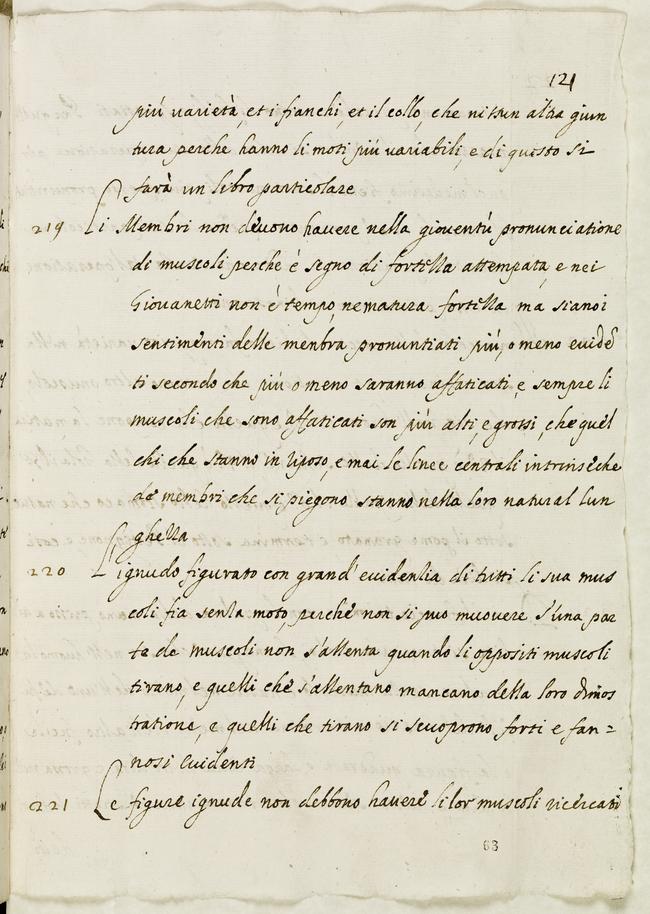 121
più varietà, et i fianchi, et il collo, che nissun altra giun
tura perche hanno li moti più variabili, e di questo si
farà un libro particolare
219 Li Membri non devono havere nella gioventù pronunciatione
di muscoli perche è segno di fortezza attempata, e nei
Giovanetti non è tempo, ne matura fortezza ma sianoi
sentimenti delle menbra pronuntiati più, o meno euidē
ti secondo che più o meno saranno affaticati, e sempre li
muscoli che sono affaticati son più alti, e grossi, che quel
chi che stanno in riposo, e mai le linee centrali intrinseche
de membri che si piegono stanno nella loro natural lun
ghezza
220 L'ignudo figurato con grand' euidenzia di tutti li sua mus
coli fia senza moto, perche non si puo muouere s'una par
te de muscoli non s'allenta quando li oppositi muscoli
tirano, e quelli che s'allentano mancano della loro dimos
tratione, e quelli che tirano si scuoprono forti e fan=
nosi euidenti
221 Le figure ignude non debbono havere li lor muscoli ricercati
63